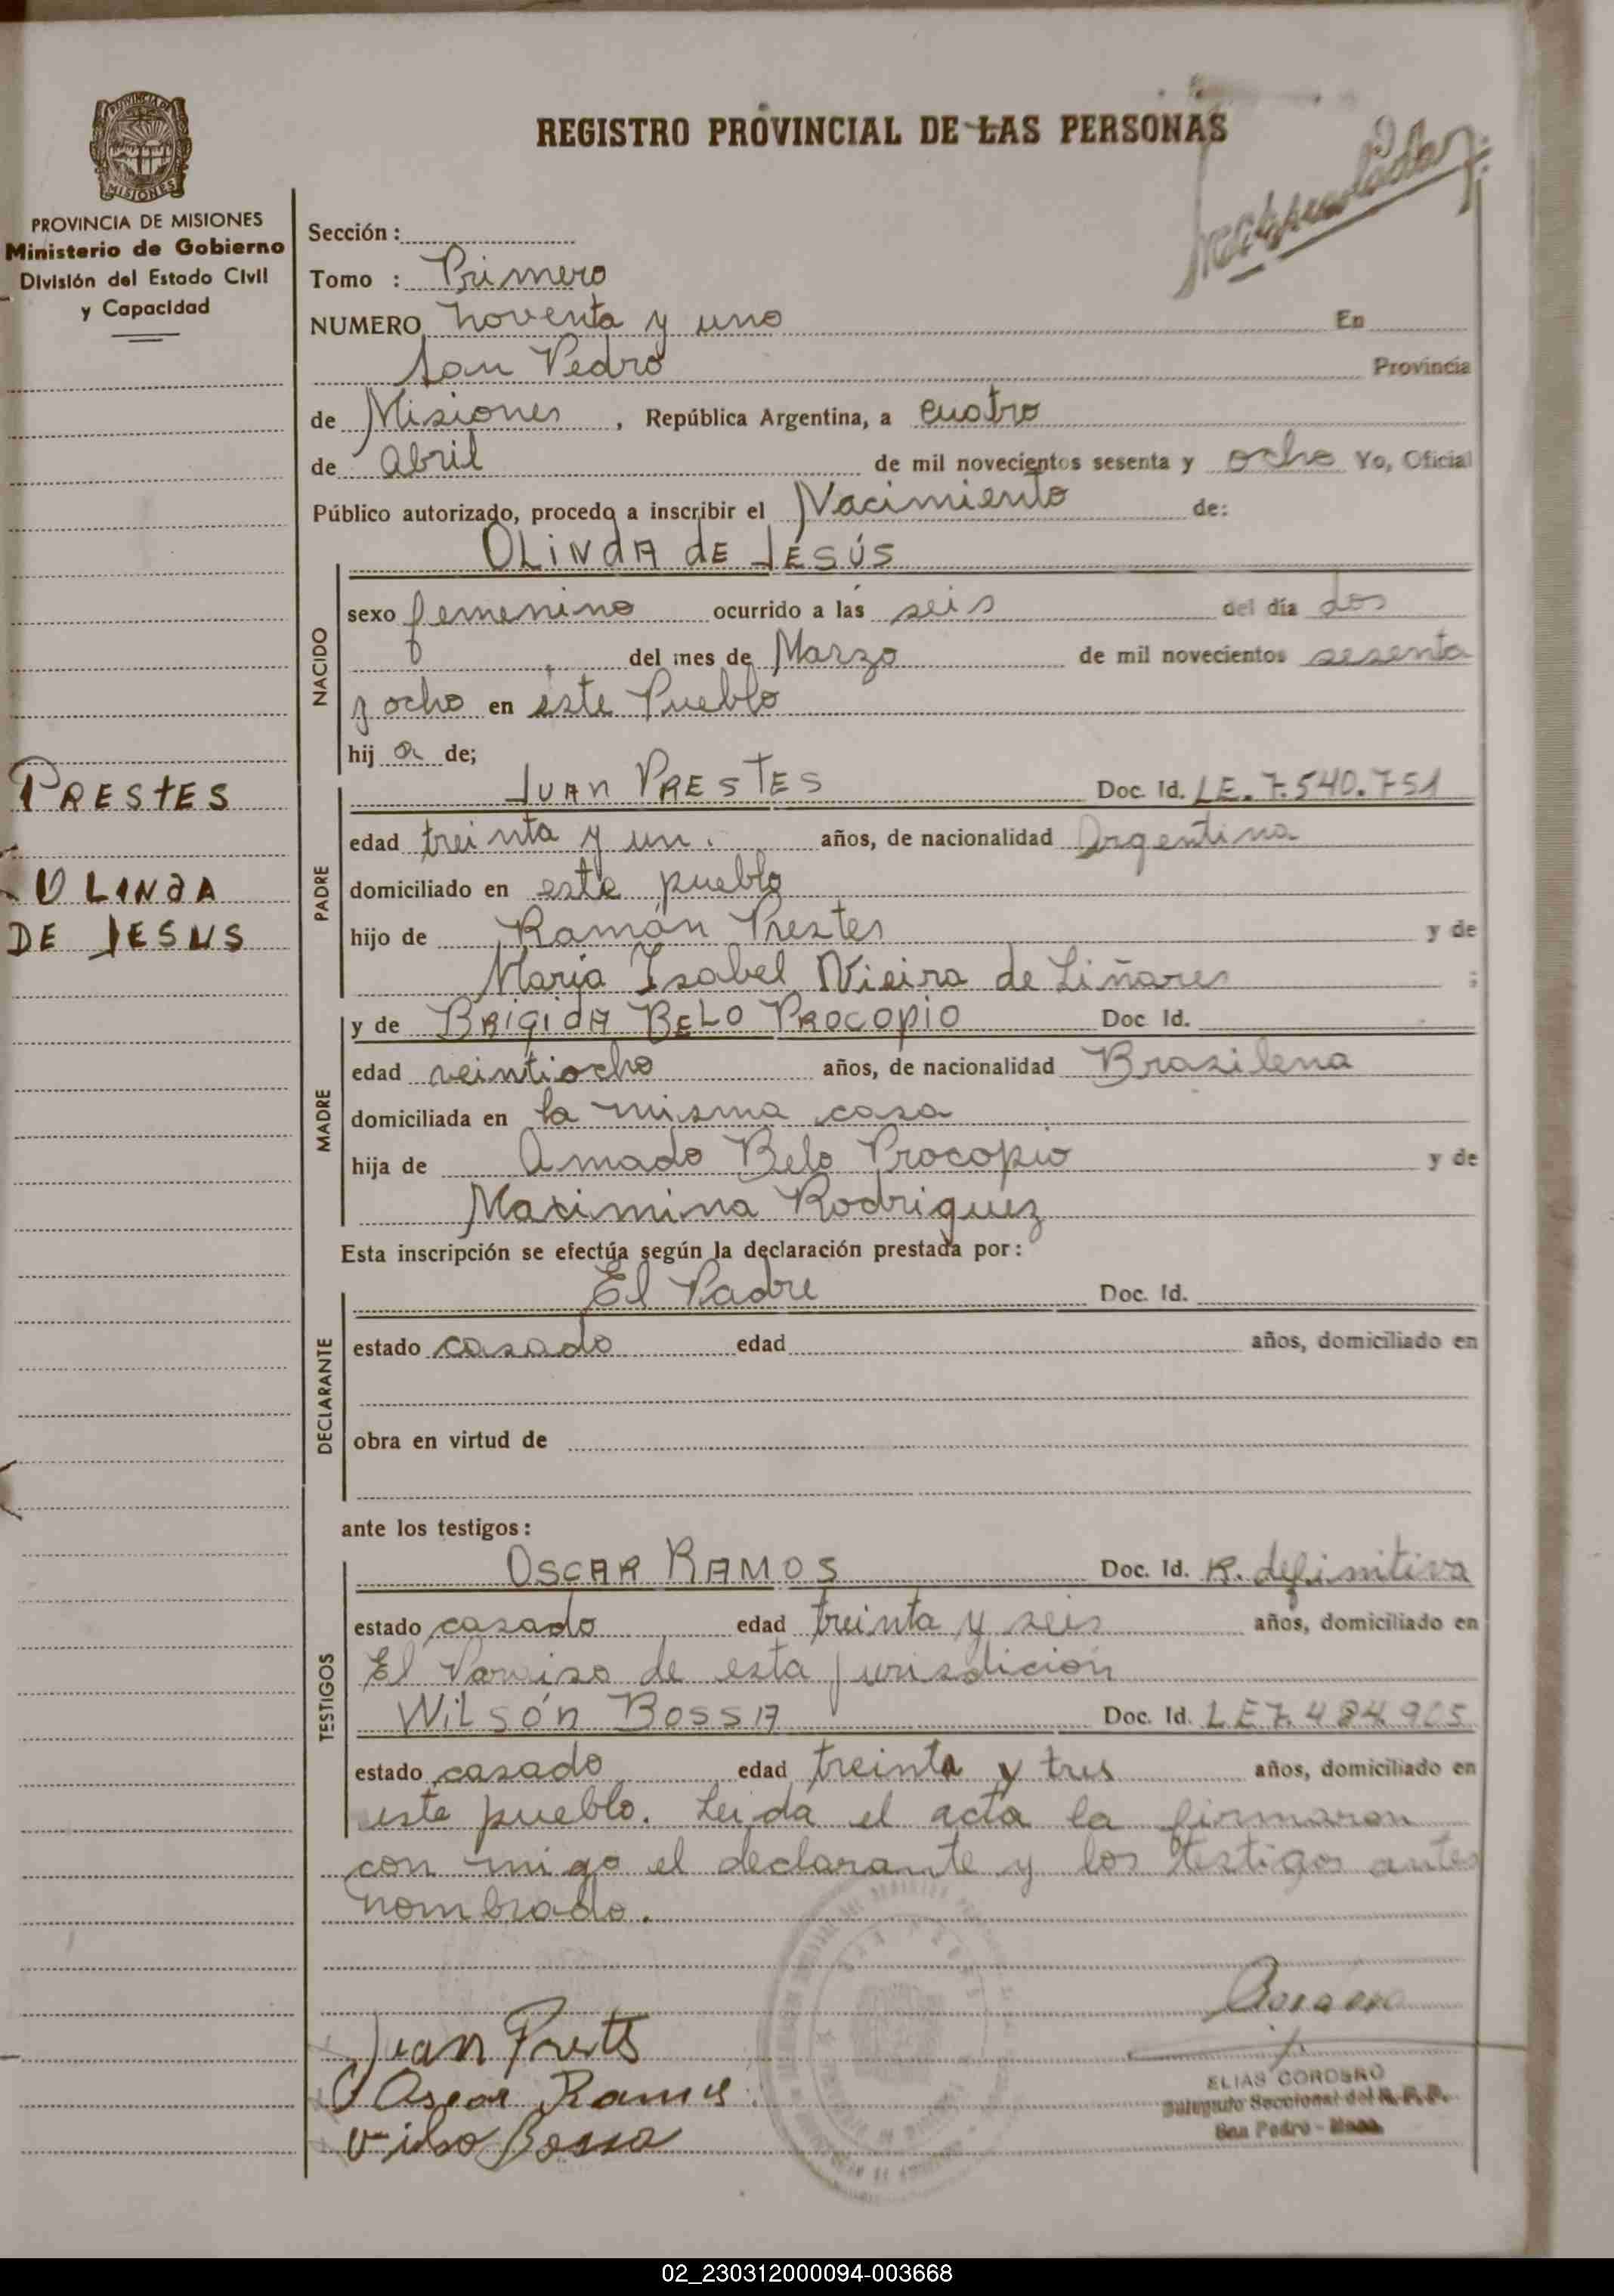 PROVINCIA DE MISIONES
Ministerio de Gobierno
División del Estado Civil
y Capacidad
PRESTES
OLINdA
DE JESUS
REGISTRO PROVINCIAL DE LAS PERSONAS
Sección :
Tomo : Primero
NUMERO noventa y uno En
San Pedro Provincia
de Misiones , República Argentina, a cuatro
de abril de mil novecientos sesenta y ocho Yo, Oficial
Público autorizado, procedo a inscribir el Nacimiento de:
OLiNdA dE JÉSÚS
NACIDO
sexo femenino ocurrido a las seis del día dos
del mes de Marzo de mil novecientos sesenta
y ocho en éste Pueblo
hij a de;
PADRE
JUAN PRESTES Doc. Id. LE. 7.540.751
edad treinta y un. años, de nacionalidad Argentina
domiciliado en este pueblo
hijo de Ramón Prestes y de
María Isabel Vieira de Liñares ;
MADRE
y de BRÍGIDA BELO PROCOPIO Doc Id.
edad veintiocho años, de nacionalidad Brasilena
domiciliada en la misma casa
hija de Amado Belo Procopio y de
Maximina Rodriguez
Esta inscripción se efectúa según la declaración prestada por :
DECLARANTE
El Padre Doc. Id.
estado casado edad años, domiciliado en
obra en virtud de
ante los testigos :
TESTIGOS
OSCAR RAMOS Doc. Id. R. definitiva
estado casado edad treinta y seis años, domiciliado en
El Paraiso de esta jurisdición
WiLSÓn BOSSA Doc. Id. LE 7.484.905
estado casado edad treinta y tres años, domiciliado en
este pueblo. Leida el acta la firmaron
con migo el declarante y los testigos antes
nombrado.
Juan
Oscar Ramos
Vilso Bossa
ELIAS CORDERO
Delegado Seccional del R. P. P.
San Pedro - Mnes.
02_230312000094-003668